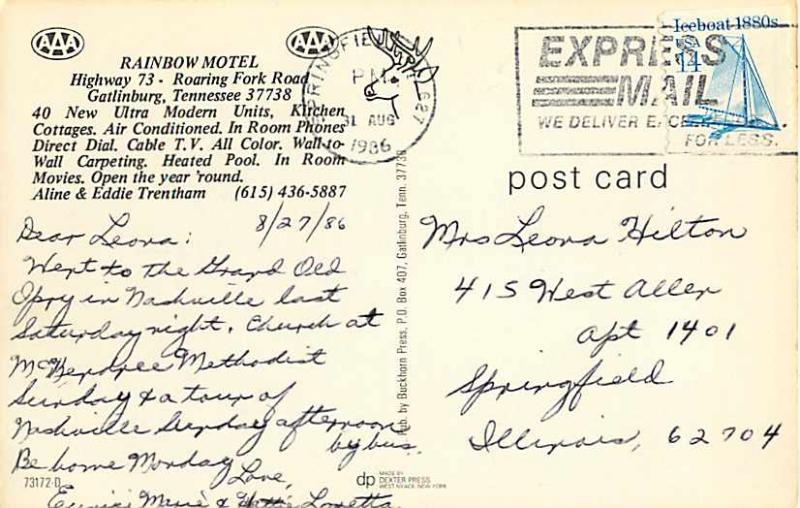 AAA AAA
RAINBOW MOTEL
Highway 73 - Roaring Fork Road
Gatlinburg, Tennessee 37738
40 New Ultra Modern Units, Kitchen
Cottages. Air Conditioned. In Room Phones
Direct Dial. Cable T.V. All Color. Wall-to-
Wall Carpeting. Heated Pool. In Room
Movies. Open the year 'round.
Aline & Eddie Trentham (615) 436-5887
8/27/86
Dear Leona:
Went to the Grand Old
Opry in Nashville last
Saturday night. Church at
McKendree Methodist
Sunday & a tour of
Nashville Sunday afternoon
by bus.
Be home Monday
Love,
Marie & Loretta
73172-D
Pub. by Buckhorn Press, P.O. Box 407, Gatlinburg, Tenn. 37738
dp MADE BY
DEXTER PRESS
WEST NYACK, NEW YORK
PM
31 AUG
1986
EXPRESS
MAIL
WE DELIVER
FOR LESS.
Iceboat 1880s
14
post card
Mrs Leona Hilton
415 West Allen
Apt 1401
Springfield
Illinois, 62704